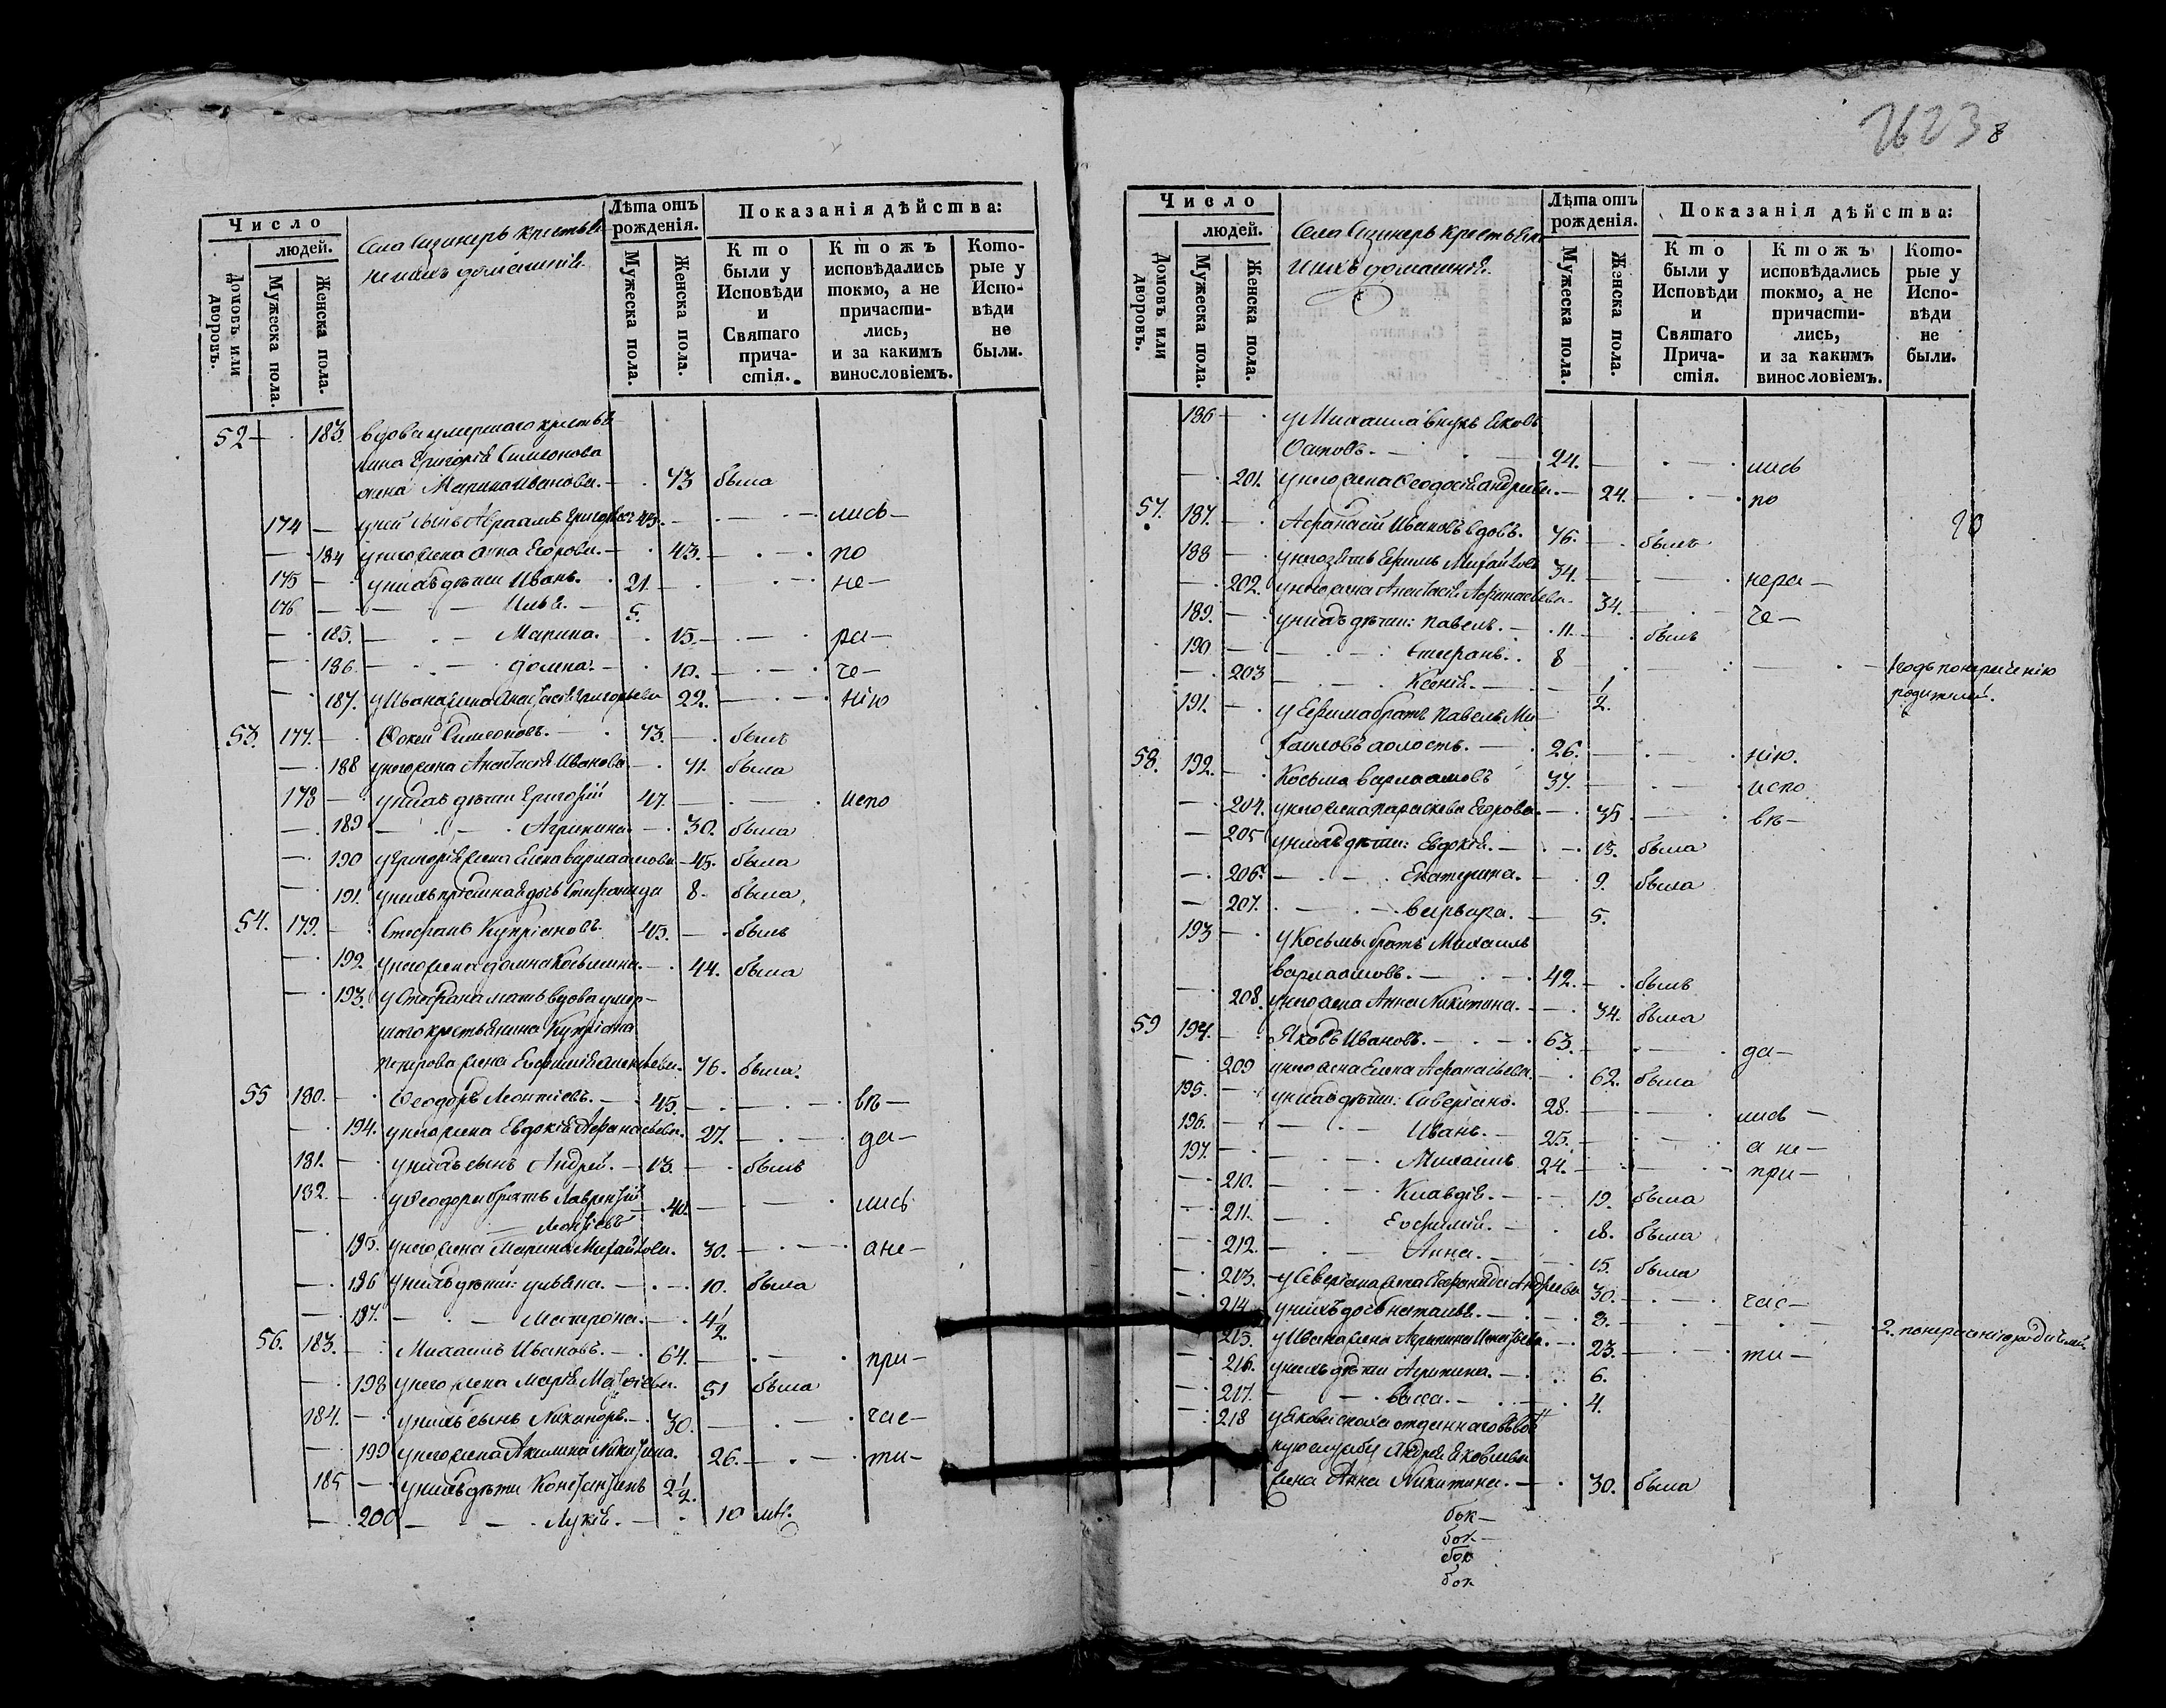 Число
людей.
Домовъ или дворовъ.
Мужеска пола.
Женска пола.
Села Сизнеръ крестья
не и ихъ домашнія.
Лѣта отъ рожденія.
Мужеска пола.
Женска пола.
Показанія дѣйства:
Кто были у Исповѣди и Святаго причастія.
Ктожъ исповѣдались токмо, а не причастились, и за какимъ винословіемъ.
Которые у Исповѣди не были.
52 183. вдова умершаго крестья
нина Григорія Симеонова
жена Марина Иванова. 73 была
174 у ней сынъ Авраамъ Григорьевъ 43. лись
184 у него жена Анна Егорова. 43. по
175 у нихъ дѣти Иванъ. 21. не
176 Илья. 5.
185. Марина. 15. ра
186. Домна. 10. че
187. у Ивана жена Анастасія Григорьева 22. нію
53. 177. Фокей Симеоновъ. 73. былъ
188 у него жена Анастасія Иванова 71. была
178 у нихъ дѣти Григорій 47. испо
189 Агрипина 30. была
190 у Григорія жена Елена Варлаамова 45. была
191. у нихъ пріемная дочь Стефанида 8. была
54. 179. Стефанъ Купріяновъ. 45. былъ
192. у него жена Домна Козьмина. 44. была
193. у Стефана мать вдова умер
шаго крестьянина Купріяна
Петрова жена Евфимія 76. была.
55 180. Ѳеодоръ Леонтіевъ. 45. вѣ
194. у него жена Евдокія Афанасьева. 27. да
181. у нихъ сынъ Андрей. 13. былъ
182. у Ѳеодора братъ Лаврентій
Леонтіевъ 40. лись
195. у него жена Марина Михайлова. 30. а не
196 у нихъ дѣти: Ульяна. 10. была
197. Матрона. 4 1/2
56. 183. Михаилъ Ивановъ. 64. при
198 у него жена Марія Матвіева. 51 была
184. у нихъ сынъ Никаноръ. 30. час
199 у него жена Акилина Никитина. 26. ти
185 у нихъ дѣти Константинъ 2 1/2.
200 Лукія. 10 мѣ.
2623 8
Число
людей.
Домовъ или дворовъ.
Мужеска пола.
Женска пола.
Села Сизнеръ крестьяне
и ихъ домашнія.
Лѣта отъ рожденія.
Мужеска пола.
Женска пола.
Показанія дѣйства:
Кто были у Исповѣди и Святаго Причастія.
Ктожъ исповѣдались токмо, а не причастились, и за какимъ винословіемъ.
Которые у Исповѣди не были.
186 у Михаила внукъ Яковъ
Осиповъ. 24. лись
201. у него жена Ѳеодосія Андреева. 24. по
57. 187. Афанасій Ивановъ вдовъ. 76. былъ
188 у него зять Ефимъ Михайловъ 34. нера
202. у него жена Анастасія Афанасьева. 34. че
189. у нихъ дѣти: Павелъ. 11. былъ
190 Стефанъ. 8
203 Ксенія. 1/2. 1 годъ по нераченію
родителей.
191. у Ефима братъ Павелъ Ми
хаиловъ холостъ. 26. нію.
58. 192. Косьма Варлаамовъ 37. испо
204. у него жена Параскева Егорова. 35 вѣ
205 у нихъ дѣти: Евдокія. 15. была
206. Екатерина. 9. была
207. Варвара. 5.
193 у Косьмы братъ Михаилъ
Варлаамовъ. 42. былъ
208. у него жена Анна Никитина. 34. была
59 194. Яковъ Ивановъ. 63. да
209 у него жена Елена Афанасьева. 62. была
195. у нихъ дѣти: Сиверіанъ. 28. лись
196. Иванъ. 25. а не
197. Михаилъ 24. при
210. Клавдія. 19. была
211. Евфимія. 18. была
212. Анна. 15. была
213. у Северіана жена Стефанида Андреева 30. час
214 у нихъ дочь Наталья. 8. 2. по нераченію родителей
215. у Ивана жена Агрипина Игнатьева. 23. ти
216. у нихъ дѣти Агрипина. 6.
217. Васса. 4.
218 у Якова сноха отданнаго въ воен
ную службу Андрея Яковлева
жена Анна Никитина. 30. была
бок
бок
бок
бок